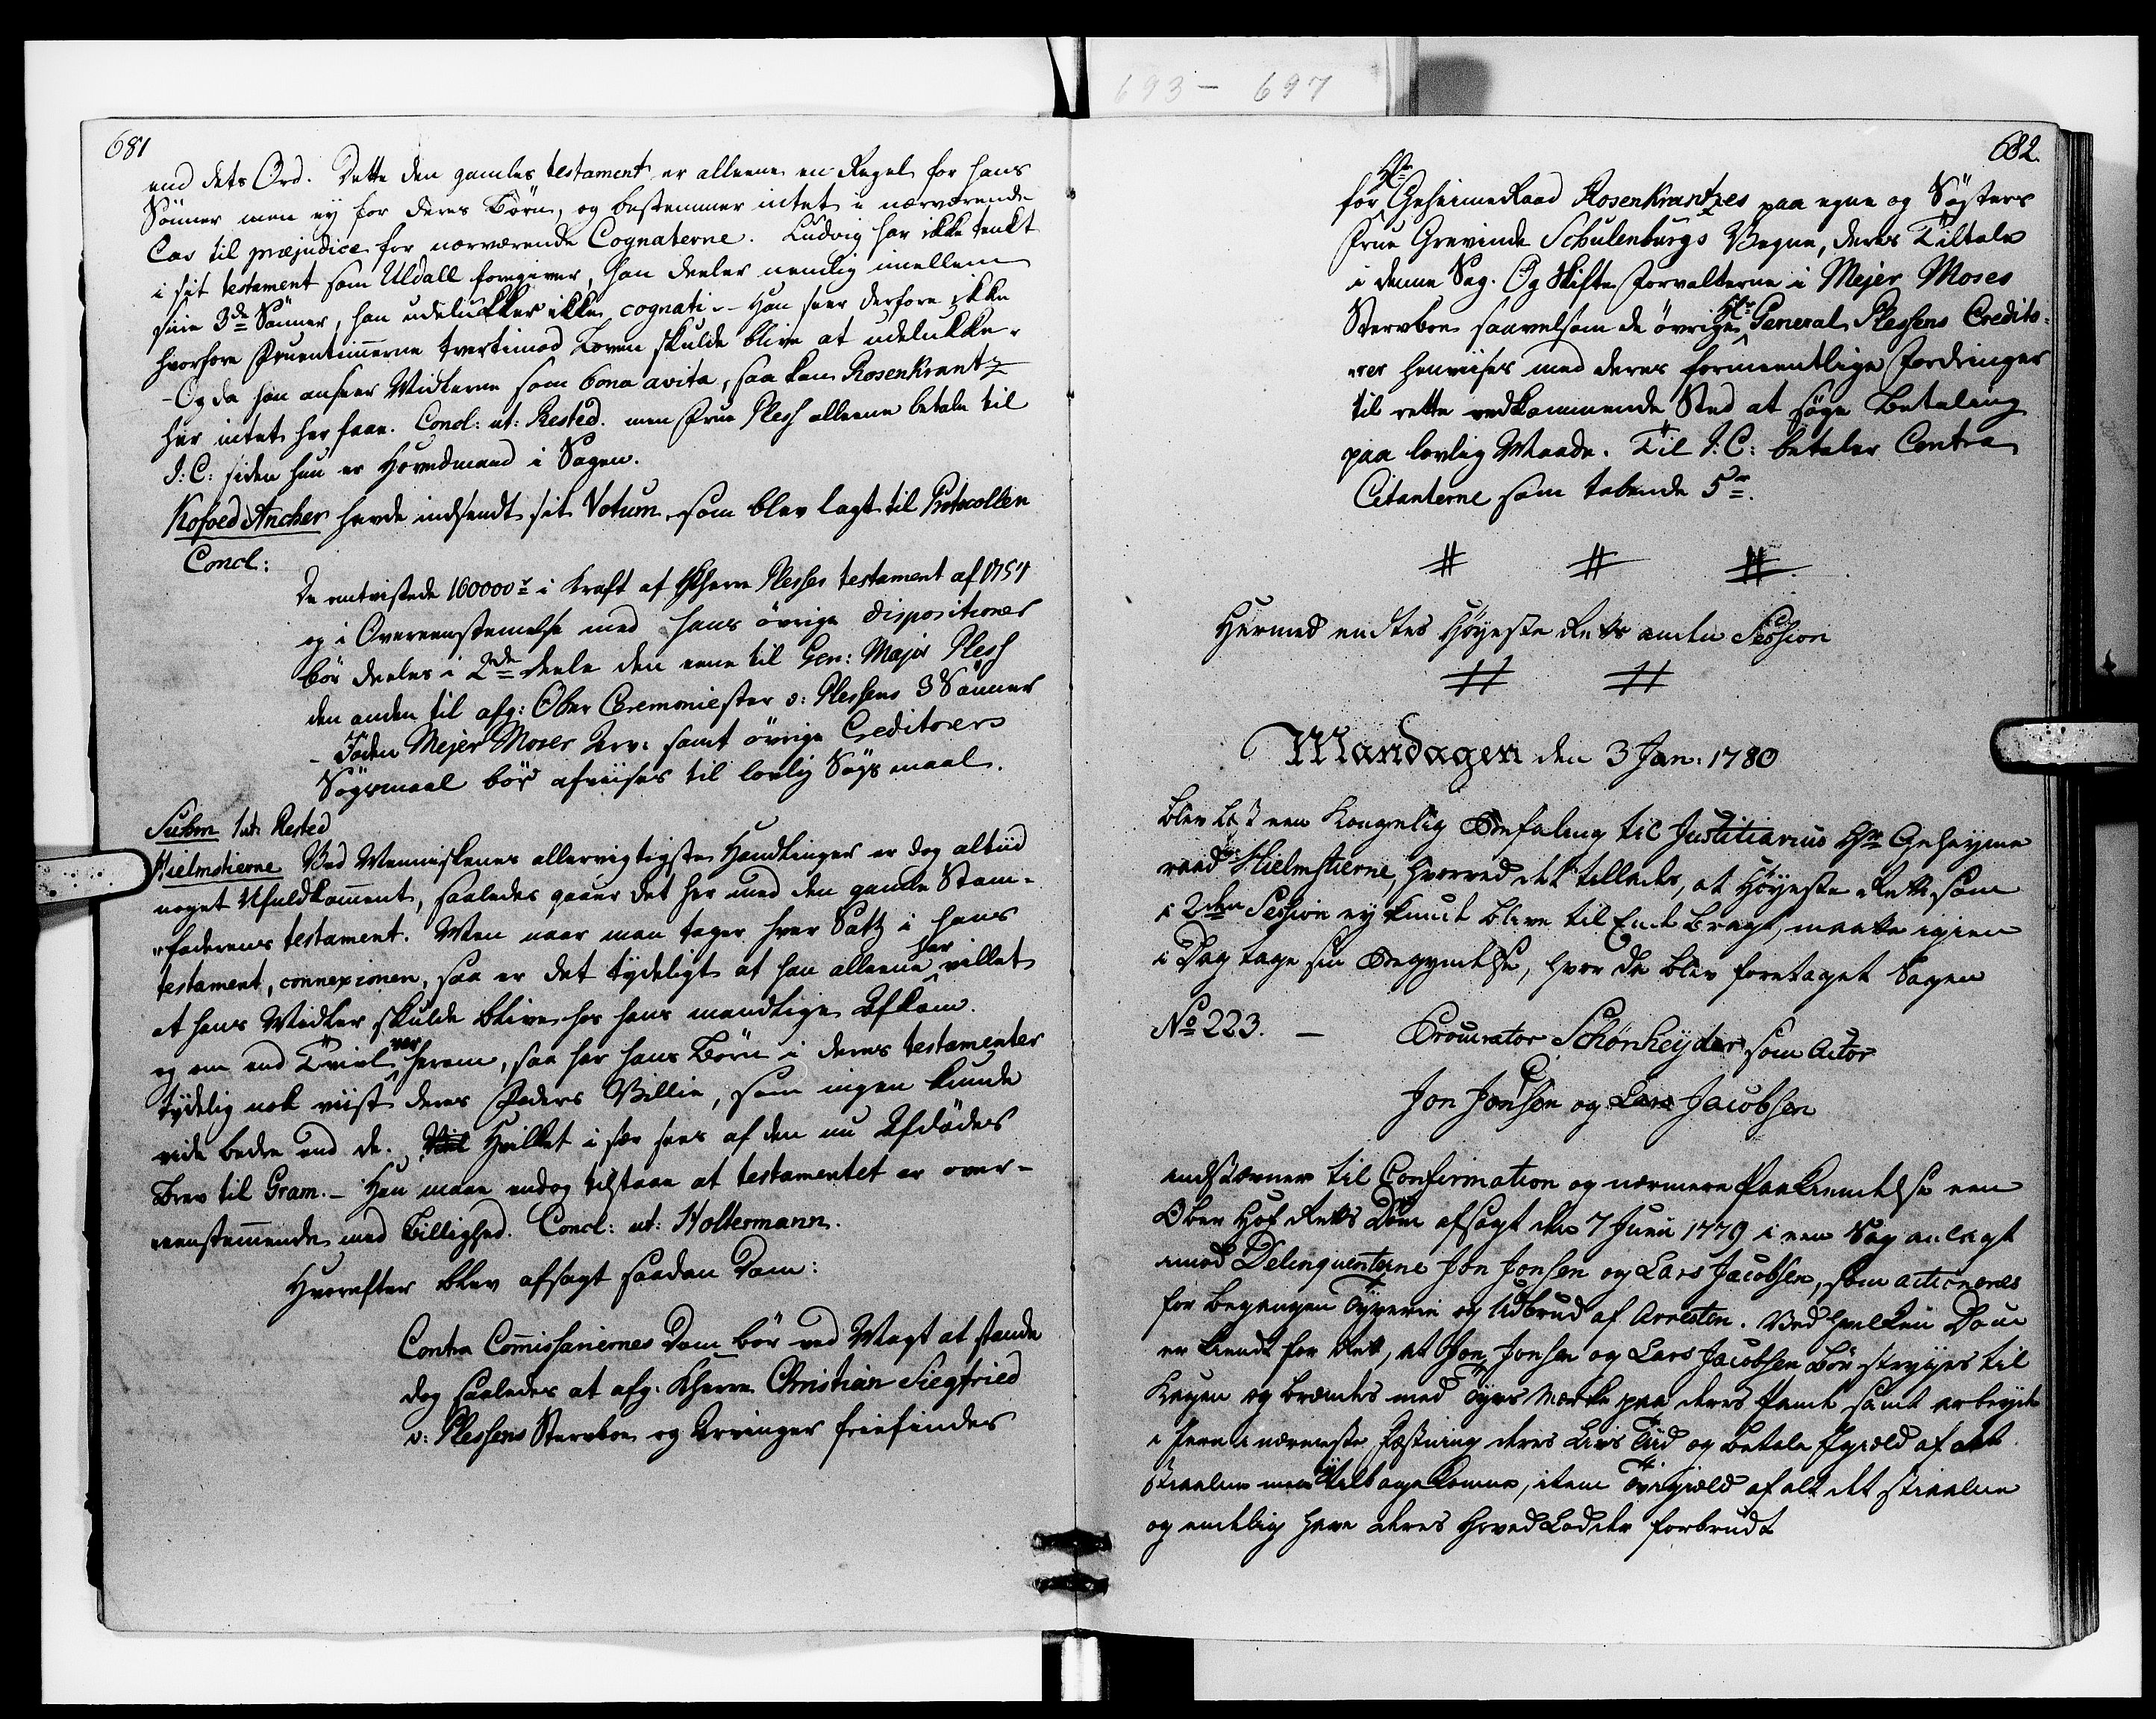 693 - 697
681
end dets Ord. Dette den gamles testament er alleene en Regel for hans
Sönner men ey for deres Börn, og bestemmer intet i nærværende
Cas til præjudice for nærværende Cognaterne. Ludvig har ikke tenkt
i sit testament som Uldall foregiver, han deeler nemlig imellem
sine 3de Sönner, han udelukker ikke cognati - Han seer derfore ikke
hvorfore Fruentimerne tvertimod Loven skulde blive at udelukke.
- Og da han anseer Midlerne som bona avita, saa kan Rosenkrantz
her intet her faae. Concl: ut: Rested. men Frue Pless alleene betale til
J: C: siden hun er Hovedmand i Sagen.
Kofoed Ancher havde indsendt sit Votum som blev lagt til Protocollen
Concl:
De omtvistede 160000 i Kraft af Kherre Plesses testament af 1754
og i Overeenstemelse med hans övrige dispositioner
bör deeles i 2de deele den eene til Gen: Major Pless
den anden til afg: Ober Ceremoniester v: Plessens 3 Sönner
- Jöden Mejer Moses Arv: samt övrige Creditorers
Sögsmaal bör afviises til lovlig Sögsmaal.
Suhm ut: Rested
Hielmstierne Ved Menniskenes allervigtigste Handlinger er dog altiid
noget Ufuldkoment, saaledes gaaer det her med den gamle Stam-
faderens testament. Men naar man tager hver Satz i hans
testament, connexionen, saa er det tydeligt at han alleene har villet
at hans Midler skulde blive hos hans mandlige Afkom.
og om end Tvivl var herom, saa har hans Börn i deres testamenter
tydelig nok viist deres Faders Villie, som ingen kunde
vide bedre end de. Hvilket i sær sees af den nu Afdödes
Brev til Gram. - Han maae endog tilstaae at testamentet er over-
eenstemmende med Billighed. Concl: ut: Holtermann.
Hvorefter blev afsagt saadan Dom:
Contra Comissariernes Dom bör ved Magt at stande
dog saaledes at afg. Kherre Christian Siegfried
v: Plessens Stervboe og Arvinger friefindes
682.
for Hr Geheimeraad Rosenkrantzes paa egne og Søsters
Frue Grevinde Schulenburgs Vegne, deres Tiltale
i denne Sag. Og Skifte Forvalterne i Mejer Moses
Stervboe saavelsom de övrige Hr General Plessens Credito-
rer henviises med deres formeentlige Fordringer
til rette vedkommende Sted at söge Betaling
paa lovlig Maade. Til J: C: betaler Contra
Citanterne som tabende 5.
Hermed endtes Höyeste Retts anden Session
Mandagen den 3 Jan: 1780
blev læst een Kongelig Befaling til Justitiarius Hr Geheyme
raad Hielmstierne, hvorved det tillades, at Höyeste Rett som
i 2den Session ey kunde blive til Ende bragt, maatte igien
i Dag tage sin Begyndelse, hvor da blev foretaget Sagen
No 223. - Procurator Schönheyder som Actor
C
Jon Jonsen og Lars Jacobsen
indstævner til Confirmation og nærmere Paakiendelse een
Ober Hof Retts Dom afsagt den 7 Juni 1779 i een Sag anlagt
imod Delinquenterne Jon Jonsen og Lars Jacobsen, som actioneres
for begangen Tyverie og Udbrud af Arresten. Ved hvilken Dom
er kiendt for Rett, at Jon Jonsen og Lars Jacobsen bör stryges til
Kagen og brændes med Tyvs Mærke paa deres Pande samt arbeyde
i Jern i nærmeste Fæstning deres Livs Tiid og betale Igield af det
stiaalne men tilbagekomne, item Tvigield af alt det stiaalne
og endelig have deres Hoved Lodder forbrudt